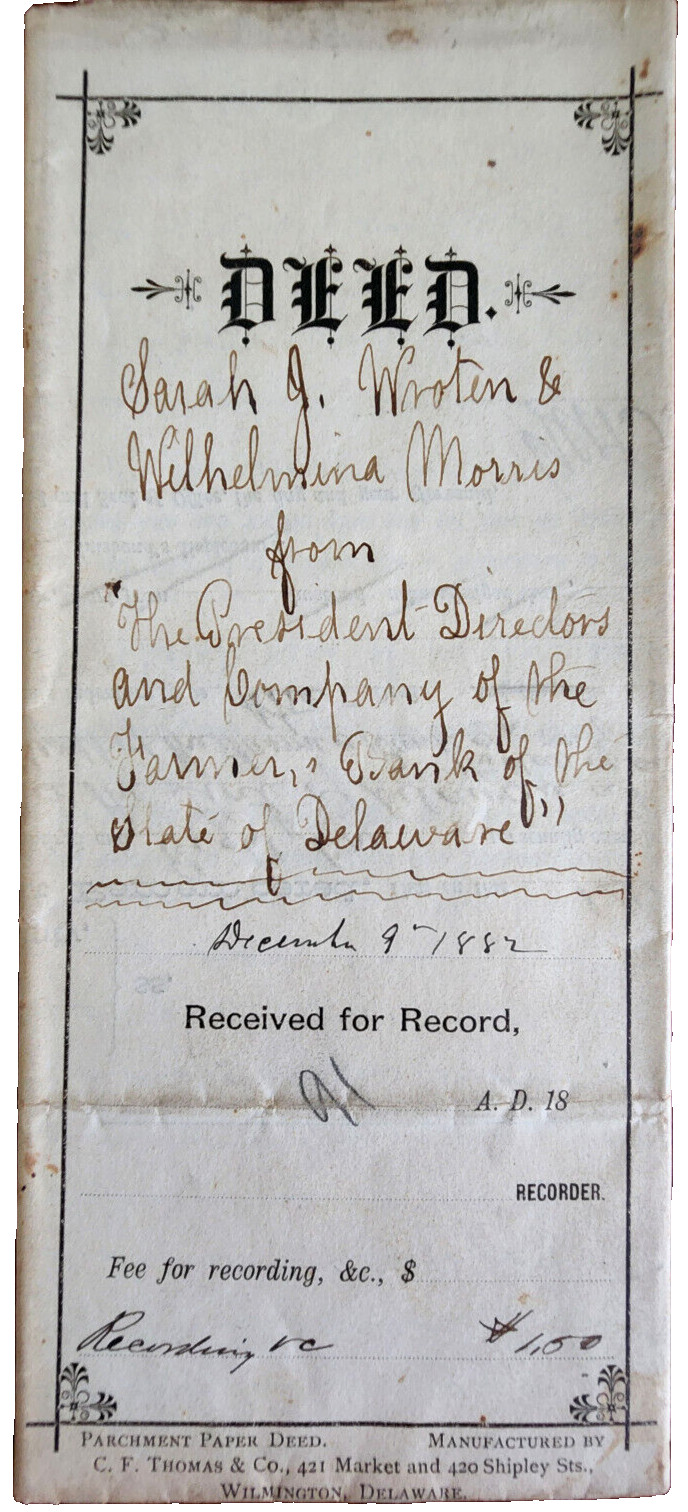 DEED.
Sarah J. Wroten &
Wilhelmina Morris
from
"The President Directors
and Company of the
Farmer,s Bank of the
State of Delaware"
December 9th 1882
Received for Record,
A. D. 18
RECORDER.
Fee for recording, &c., $
Recording &c $1,50
PARCHMENT PAPER DEED. MANUFACTURED BY
C. F. THOMAS & CO., 421 Market and 420 Shipley Sts.,
WILMINGTON, DELAWARE.